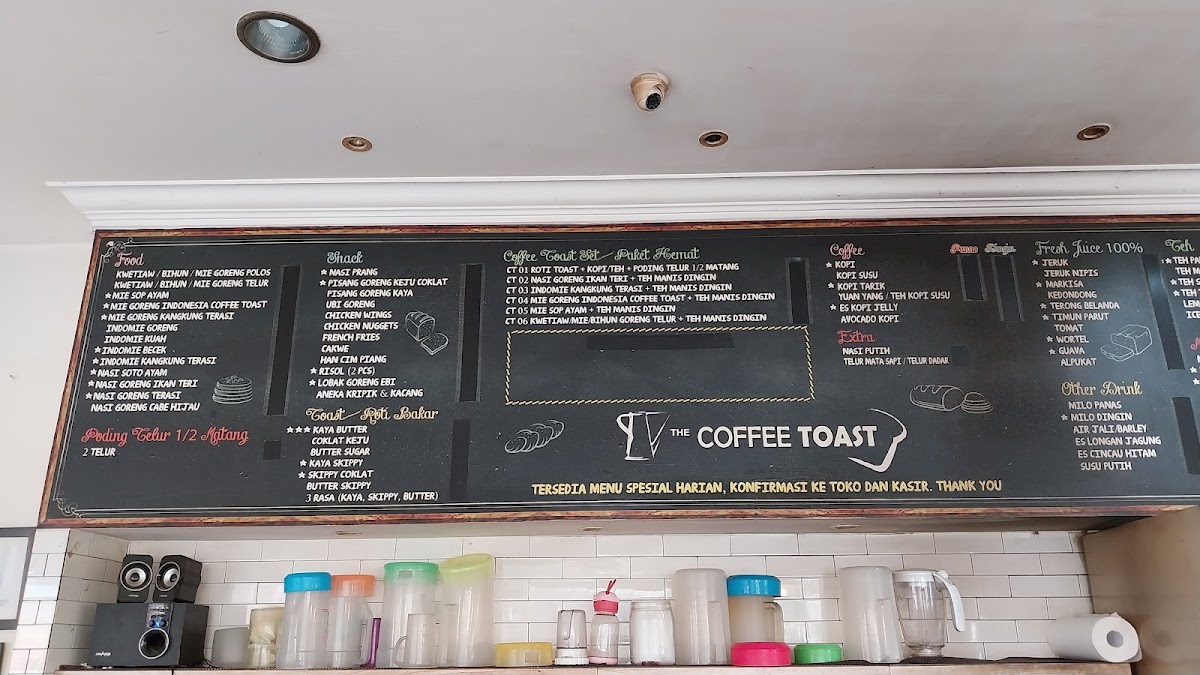 Food
KWETIAW / BIHUN / MIE GORENG POLOS
KWETIAW / BIHUN / MIE GORENG TELUR
★ MIE SOP AYAM
★ MIE GORENG INDONESIA COFFEE TOAST
★ MIE GORENG KANGKUNG TERASI
INDOMIE GORENG
INDOMIE KUAH
★ INDOMIE BECEK
★ INDOMIE KANGKUNG TERASI
★ NASI SOTO AYAM
★ NASI GORENG IKAN TERI
★ NASI GORENG TERASI
NASI GORENG CABE HIJAU
Poding Telur 1/2 Matang
2 TELUR
Snack
★ NASI PRANG
★ PISANG GORENG KEJU COKLAT
PISANG GORENG KAYA
UBI GORENG
CHICKEN WINGS
CHICKEN NUGGETS
FRENCH FRIES
CAKWE
HAN CIM PIANG
★ RISOL (2 PCS)
★ LOBAK GORENG EBI
ANEKA KRIPIK & KACANG
Toast / Roti Bakar
★★★ KAYA BUTTER
COKLAT KEJU
BUTTER SUGAR
★ KAYA SKIPPY
★ SKIPPY COKLAT
BUTTER SKIPPY
3 RASA (KAYA, SKIPPY, BUTTER)
Coffee Toast Set / Paket Hemat
CT 01 ROTI TOAST + KOPI/TEH + PODING TELUR 1/2 MATANG
CT 02 NASI GORENG IKAN TERI + TEH MANIS DINGIN
CT 03 INDOMIE KANGKUNG TERASI + TEH MANIS DINGIN
CT 04 MIE GORENG INDONESIA COFFEE TOAST + TEH MANIS DINGIN
CT 05 MIE SOP AYAM + TEH MANIS DINGIN
CT 06 KWETIAW/MIE/BIHUN GORENG TELUR + TEH MANIS DINGIN
THE COFFEE TOAST
TERSEDIA MENU SPESIAL HARIAN, KONFIRMASI KE TOKO DAN KASIR. THANK YOU
Coffee Panas Dingin
★ KOPI
KOPI SUSU
★ KOPI TARIK
YUAN YANG / TEH KOPI SUSU
★ ES KOPI JELLY
AVOCADO KOPI
Extra
NASI PUTIH
TELUR MATA SAPI / TELUR DADAR
Fresh Juice 100%
★ JERUK
JERUK NIPIS
★ MARKISA
KEDONDONG
★ TERONG BELANDA
★ TIMUN PARUT
TOMAT
★ WORTEL
★ GUAVA
ALPUKAT
Other Drink
MILO PANAS
★ MILO DINGIN
AIR JALI/BARLEY
ES LONGAN JAGUNG
ES CINCAU HITAM
SUSU PUTIH
Teh